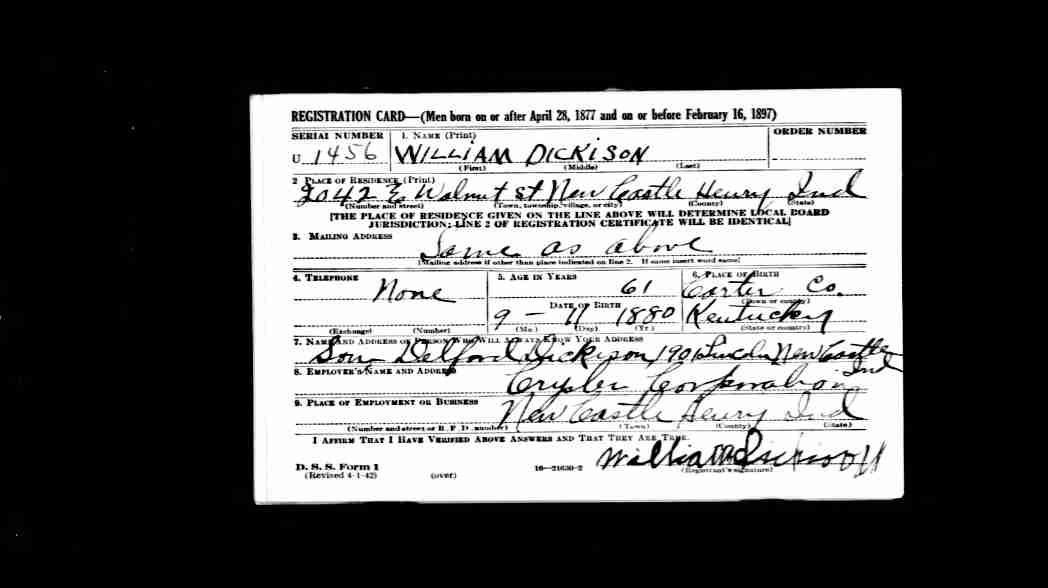 REGISTRATION CARD—(Men born on or after April 28, 1877 and on or before February 16, 1897)
SERIAL NUMBER 1. NAME (Print) ORDER NUMBER
U 1456 WILLIAM DICKISON
(First) (Middle) (Last)
2 PLACE OF RESIDENCE (Print)
2042 E Walnut St New Castle Henry Ind
(Number and street) (Town, township, village, or city) (County) (State)
[THE PLACE OF RESIDENCE GIVEN ON THE LINE ABOVE WILL DETERMINE LOCAL BOARD
JURISDICTION; LINE 2 OF REGISTRATION CERTIFICATE WILL BE IDENTICAL]
3. MAILING ADDRESS
Same as above
[Mailing address if other than place indicated on line 2. If same insert word same]
4. TELEPHONE 5. AGE IN YEARS 6. PLACE OF BIRTH
None 61 Carter Co.
DATE OF BIRTH (Town or county)
9 – 11 1880 Kentucky
(Exchange) (Number) (Mo.) (Day) (Yr.) (State or country)
7. NAME AND ADDRESS OF PERSON WHO WILL ALWAYS KNOW YOUR ADDRESS
Son Delford Dickison, 1901 Lincoln New Castle
Ind
8. EMPLOYER'S NAME AND ADDRESS
Crysler Corporation
9. PLACE OF EMPLOYMENT OR BUSINESS
New Castle Henry Ind
(Number and street or R. F. D. number) (Town) (County) (State)
I AFFIRM THAT I HAVE VERIFIED ABOVE ANSWERS AND THAT THEY ARE TRUE.
William
D. S. S. Form 1
(Revised 4-1-42) (over) 16—21630-2 (Registrant's signature)